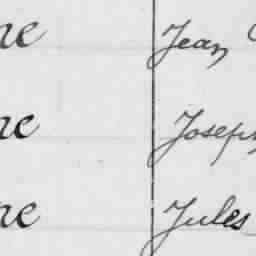 ne Jean
ne Joseph
ne Jules